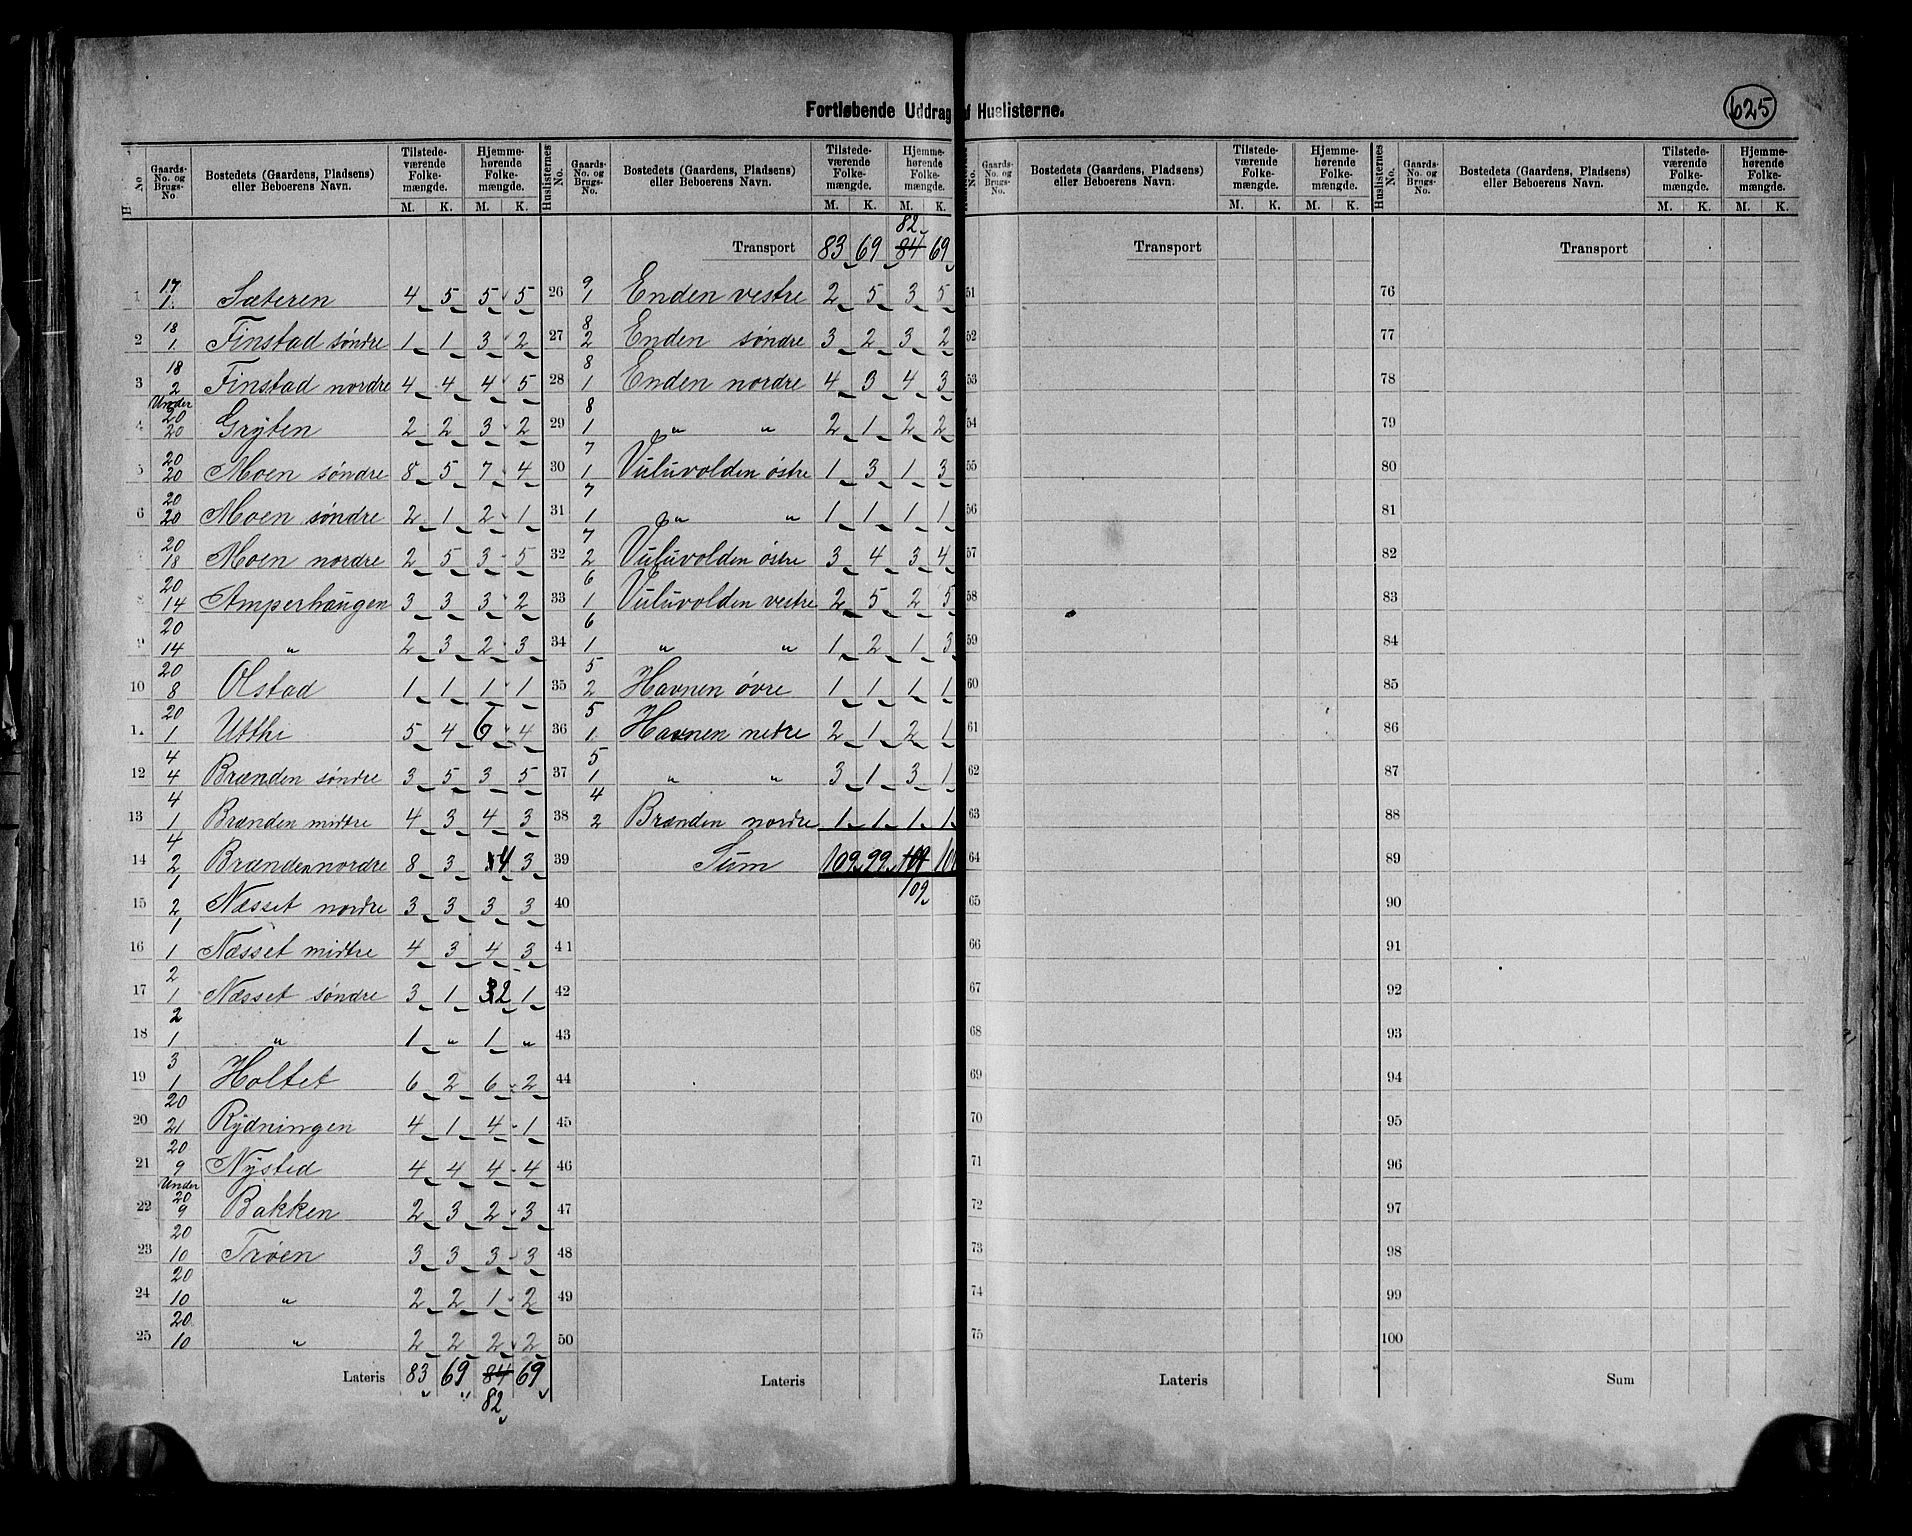 Fortløbende Uddrag af Huslisterne.
625
No Gaards-No. og Brugs-No Bostedets (Gaardens, Pladsens) eller Beboerens Navn. Tilstedeværende Folkemængde. M. K. Hjemmehørende Folkemængde. M. K.
1 17/1 Sæteren 4 5 5 5
2 18/1 Finstad søndre 1 1 3 2
3 18/2 Finstad nordre 4 4 4 5
4 Under 20/20 Gryten 2 2 3 2
5 20/20 Moen søndre 8 5 7 4
6 20/20 Moen søndre 2 1 2 1
20/18 Moen nordre 2 5 3 5
8 20/14 Amperhaugen 3 3 3 2
9 20/14 " 2 3 2 3
10 20/8 Olstad 1 1 1 1
11 20/1 Utthi 5 4 6 4
12 4/4 Brænden søndre 3 5 3 5
13 4/1 Brænden midtre 4 3 4 3
14 4/2 Brænden nordre 8 3 4 3
15 1/2 Næsset nordre 3 3 3 3
16 1/1 Næsset midtre 4 3 4 3
17 2/1 Næsset søndre 3 1 2 1
18 2/1 " 1 " 1 "
19 3/1 Holtet 6 2 6 2
20 20/21 Rydningen 4 1 4 1
21 20/9 Nysted 4 4 4 4
22 Under 20/9 Bakken 2 3 2 3
23 20/10 Trøen 3 3 3 3
24 20/10 " 2 2 1 2
25 20/10 " 2 2 2 2
Lateris 83 69 84 69
82
Huslisternes No. Gaards-No. og Brugs-No. Bostedets (Gaardens, Pladsens) eller Beboerens Navn. Tilstedeværende Folkemængde. M. K. Hjemmehørende Folkemængde. M. K.
82
Transport 83 69 84 69
26 9/1 Enden vestre 2 5 3 5
27 8/2 Enden søndre 3 2 3 2
28 8/1 Enden nordre 4 3 4 3
29 8/1 " " 2 1 2 2
30 7/1 Vuluvolden østre 1 3 1 3
31 7/1 " " 1 1 1 1
32 7/2 Vuluvolden østre 3 4 3 4
33 6/1 Vuluvolden vestre 2 5 2 5
34 6/1 " " 1 2 1 3
35 5/2 Havnen øvre 1 1 1 1
36 5/1 Havnen netre 2 1 2 1
37 5/1 " " 3 1 3 1
38 4/2 Brænden nordre 1 1 1 1
39 Sum 109 99
109
40
41
42
43
44
45
46
47
48
49
50
Lateris
No. Gaards-No. og Brugs-No. Bostedets (Gaardens, Pladsens) eller Beboerens Navn. Tilstedeværende Folkemængde. M. K. Hjemmehørende Folkemængde. M. K.
Transport
51
52
53
54
55
56
57
58
59
60
61
62
63
64
65
66
67
68
69
70
71
72
73
74
75
Lateris
Huslisternes No. Gaards-No. og Brugs-No. Bostedets (Gaardens, Pladsens) eller Beboerens Navn. Tilstedeværende Folkemængde. M. K. Hjemmehørende Folkemængde. M. K.
Transport
76
77
78
79
80
81
82
83
84
85
86
87
88
89
90
91
92
93
94
95
96
97
98
99
100
Sum